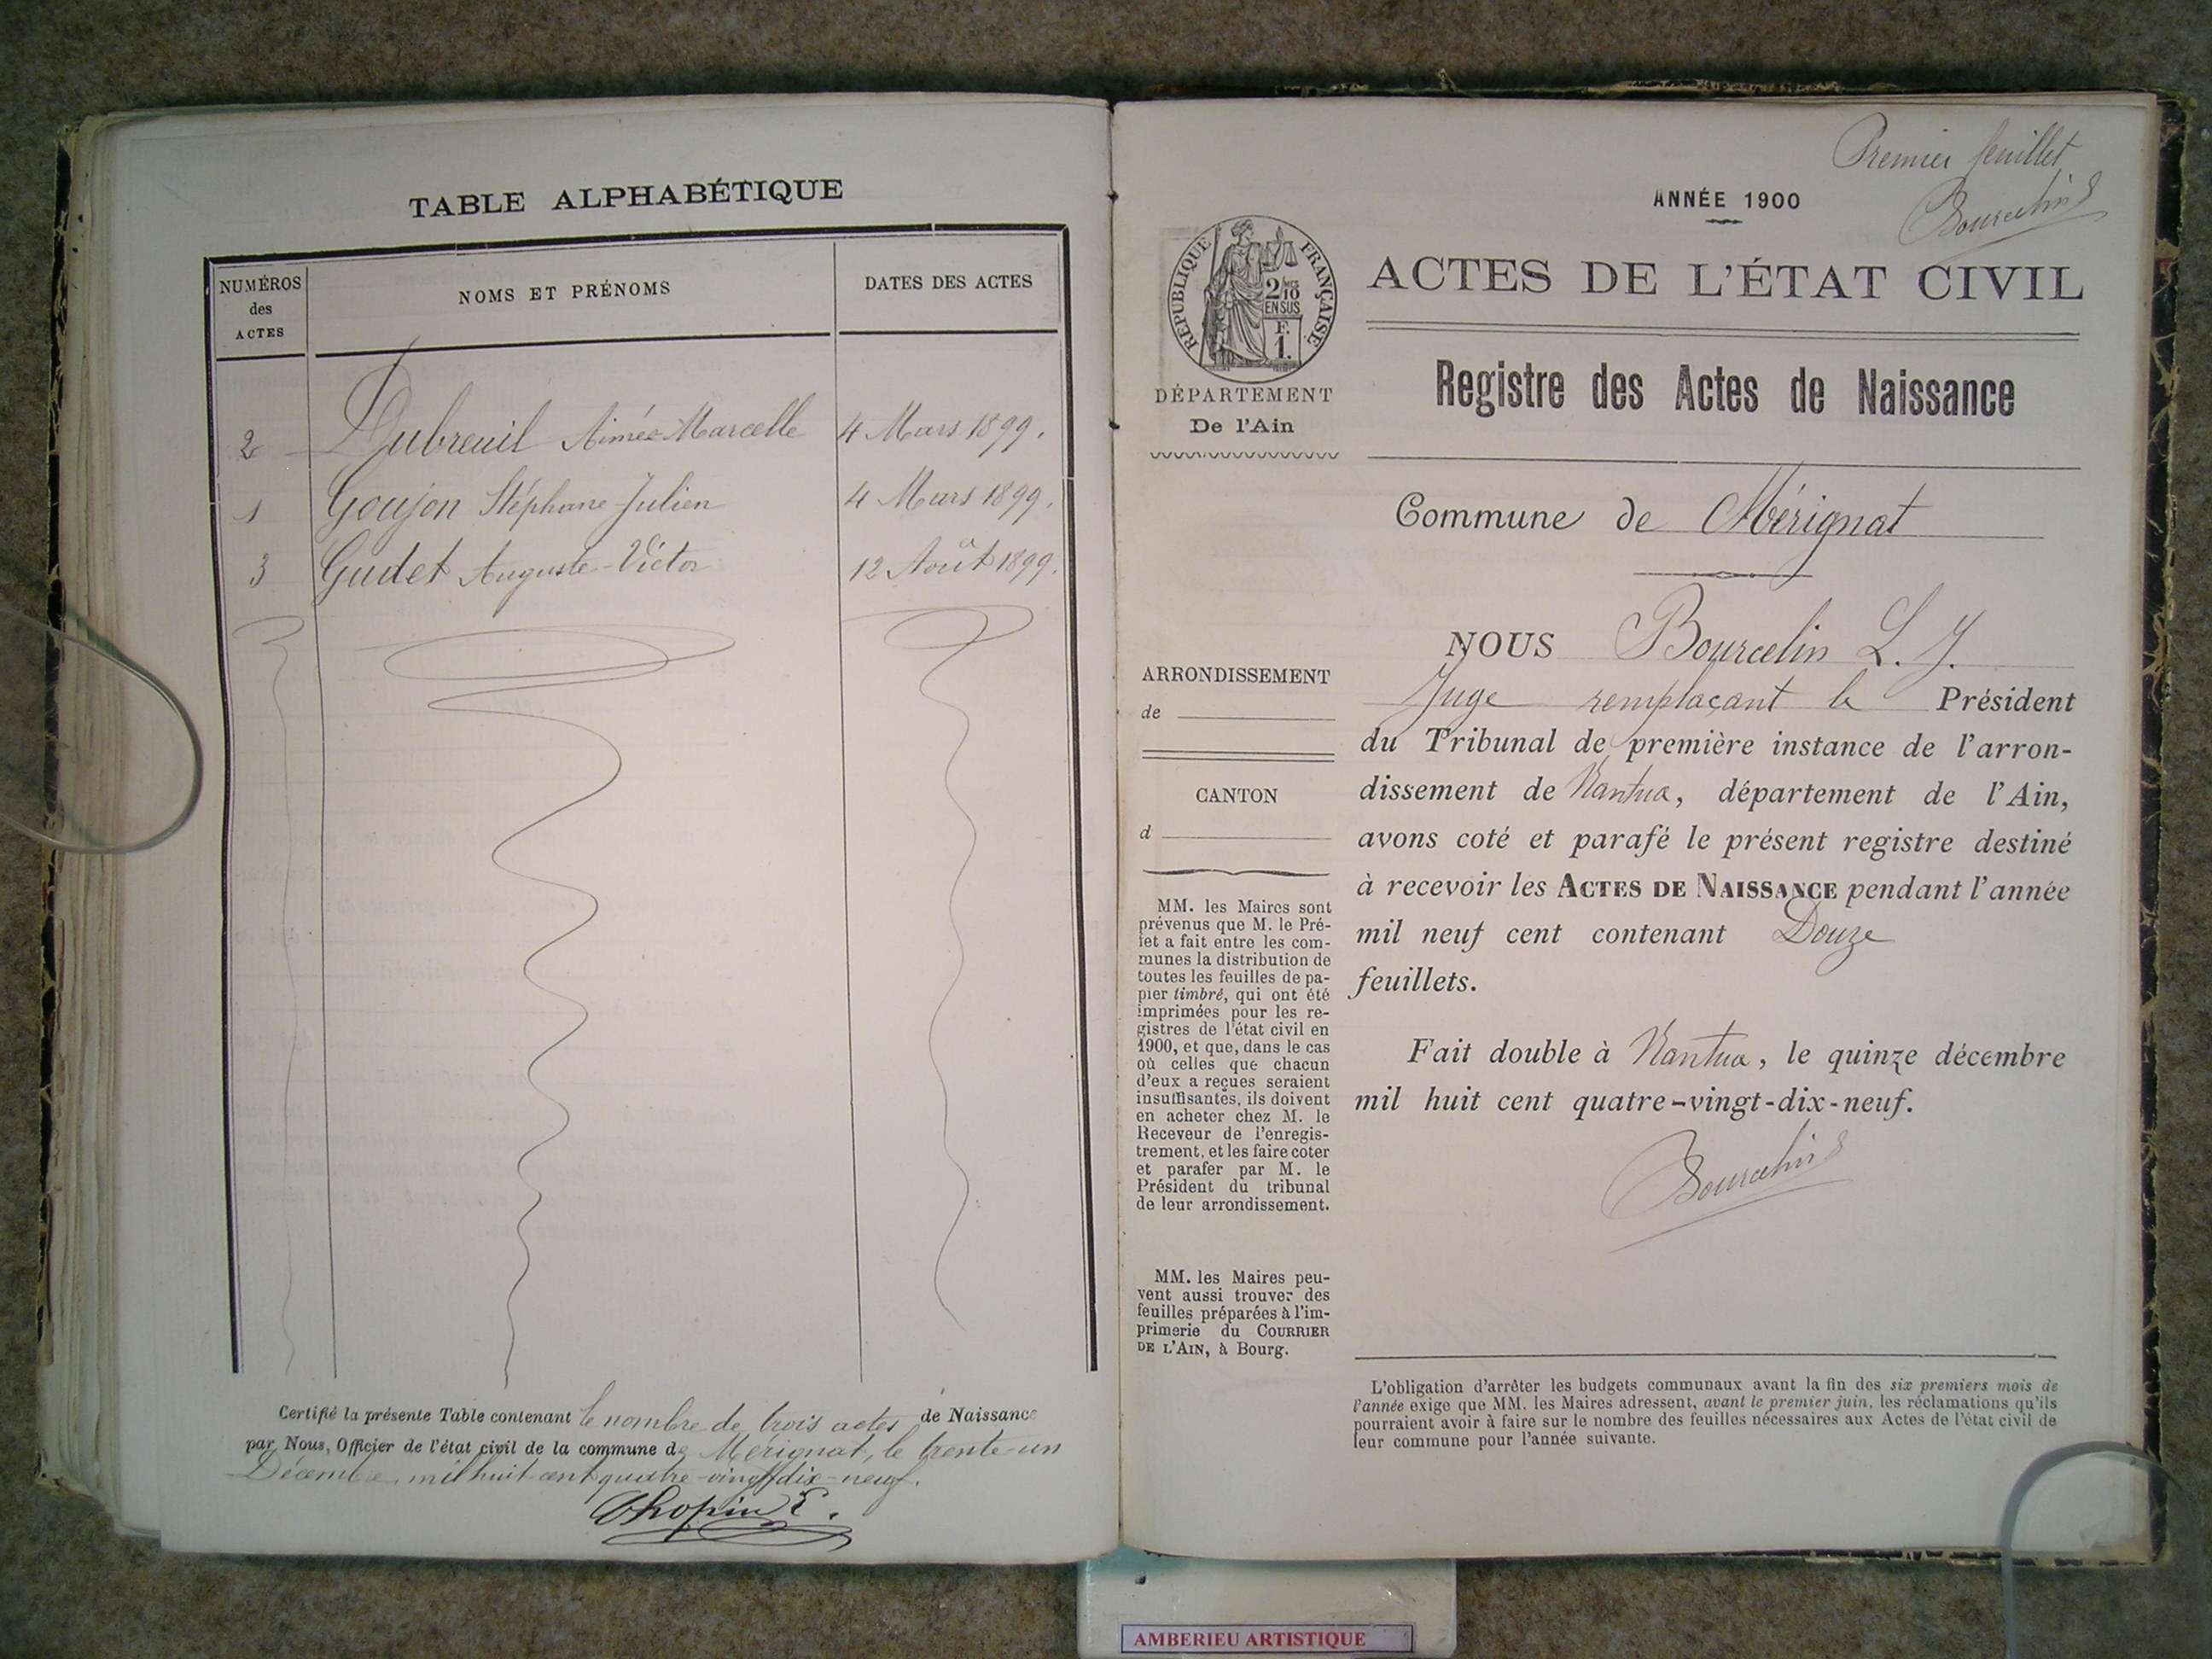 TABLE ALPHABÉTIQUE
NUMÉROS
des
ACTES
NOMS ET PRÉNOMS
DATES DES ACTES
2 Dubreuil Aimée Marcelle 4 Mars 1899.
1 Goujon Stéphane Julien 4 Mars 1899.
3 Gudet Auguste-Victor 12 Août 1899.
Certifié la présente Table contenant le nombre de trois actes de Naissance
par Nous, Officier de l'état civil de la commune de Mérignat, le trente-un
Décembre mil huit cent quatre-vingt-dix-neuf.
Chopin E.
Premier feuillet
Bourcelin
ANNÉE 1900
RÉPUBLIQUE FRANÇAISE
2/10
EN SUS
F.
1.
DÉPARTEMENT
De l'Ain
ACTES DE L'ÉTAT CIVIL
Registre des Actes de Naissance
Commune de Mérignat
ARRONDISSEMENT
de
CANTON
d
MM. les Maires sont
prévenus que M. le Pré-
fet a fait entre les com-
munes la distribution de
toutes les feuilles de pa-
pier timbré, qui ont été
imprimées pour les re-
gistres de l'état civil en
1900, et que, dans le cas
où celles que chacun
d'eux a reçues seraient
insuffisantes, ils doivent
en acheter chez M. le
Receveur de l'enregis-
trement, et les faire coter
et parafer par M. le
Président du tribunal
de leur arrondissement.
MM. les Maires peu-
vent aussi trouver des
feuilles préparées à l'im-
primerie du COURRIER
DE L'AIN, à Bourg.
NOUS Bourcelin L. J.
Juge remplaçant le Président
du Tribunal de première instance de l'arron-
dissement de Nantua, département de l'Ain,
avons coté et parafé le présent registre destiné
à recevoir les ACTES DE NAISSANCE pendant l'année
mil neuf cent contenant Douze
feuillets.
Fait double à Nantua, le quinze décembre
mil huit cent quatre-vingt-dix-neuf.
Bourcelin
L'obligation d'arrêter les budgets communaux avant la fin des six premiers mois de
l'année exige que MM. les Maires adressent, avant le premier juin, les réclamations qu'ils
pourraient avoir à faire sur le nombre des feuilles nécessaires aux Actes de l'état civil de
leur commune pour l'année suivante.
AMBERIEU ARTISTIQUE